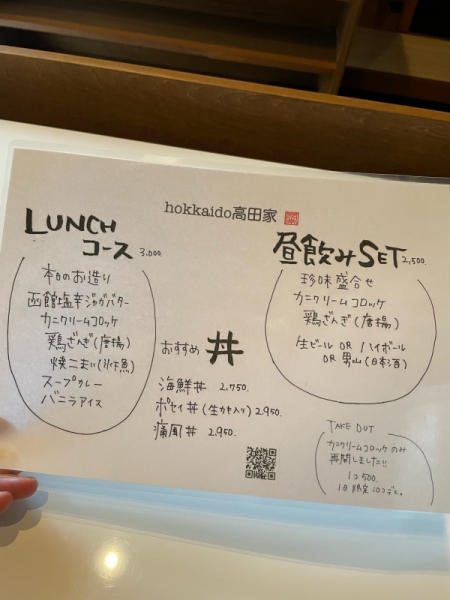 hokkaido高田家
LUNCH
コース 3,000.
本日のお造り
函館塩辛ジャガバター
カニクリームコロッケ
鶏ざんぎ(唐揚)
焼こまい(氷下魚)
スープカレー
バニラアイス
おすすめ 丼
海鮮丼 2,750.
ポセイ丼 (生カキ入り) 2,950.
痛風丼 2,950.
昼飲みSET 2,500.
珍味盛合せ
カニクリームコロッケ
鶏ざんぎ(唐揚)
生ビール OR ハイボール
OR 男山(日本酒)
TAKE OUT
カニクリームコロッケのみ
再開しました!!
1コ500.
1日限定10コデス。